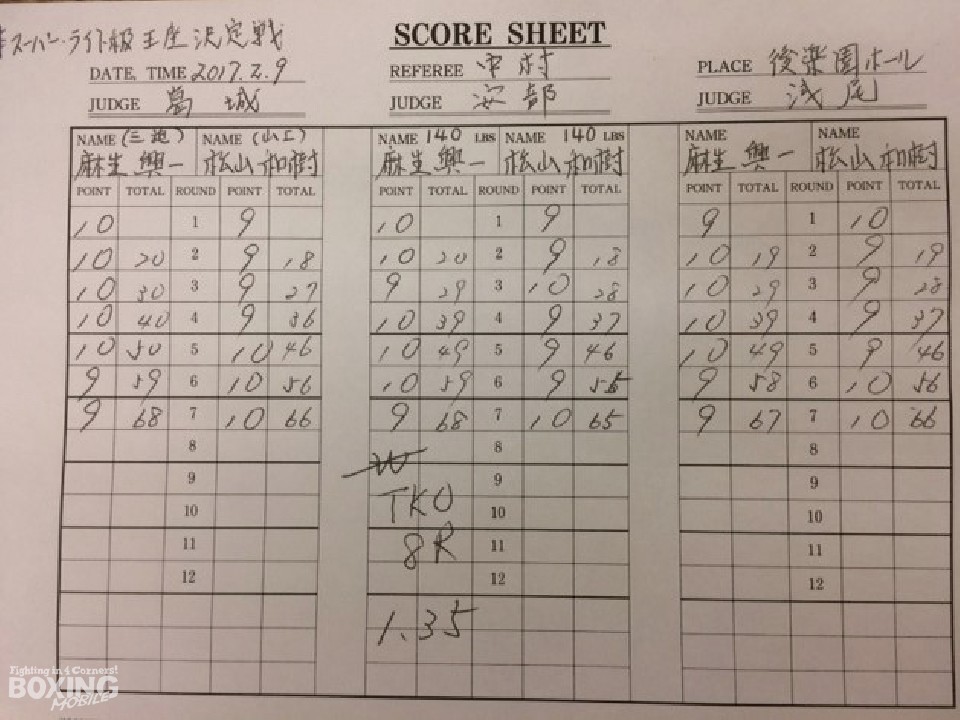 スーパー・ライト級王座決定戦
SCORE SHEET
DATE, TIME 2017.2.9 REFEREE 中村 PLACE 後楽園ホール
JUDGE 葛城 JUDGE 安部 JUDGE 浅尾
NAME (三迫) NAME (山上) NAME 140 LBS NAME 140 LBS NAME NAME
麻生興一 松山和樹 麻生興一 松山和樹 麻生興一 松山和樹
POINT TOTAL ROUND POINT TOTAL POINT TOTAL ROUND POINT TOTAL POINT TOTAL ROUND POINT TOTAL
10 1 9 10 1 9 9 1 10
10 20 2 9 18 10 20 2 9 18 10 19 2 9 19
10 30 3 9 27 9 29 3 10 28 10 29 3 9 28
10 40 4 9 36 10 39 4 9 37 10 39 4 9 37
10 50 5 10 46 10 49 5 9 46 10 49 5 9 46
9 59 6 10 56 10 59 6 9 55 9 58 6 10 56
9 68 7 10 66 9 68 7 10 65 9 67 7 10 66
8 8 8
9 W 9 9
10 TKO 10 10
11 8R 11 11
12 12 12
1.35
Fighting in 4 Corners!
BOXING
MOBILE